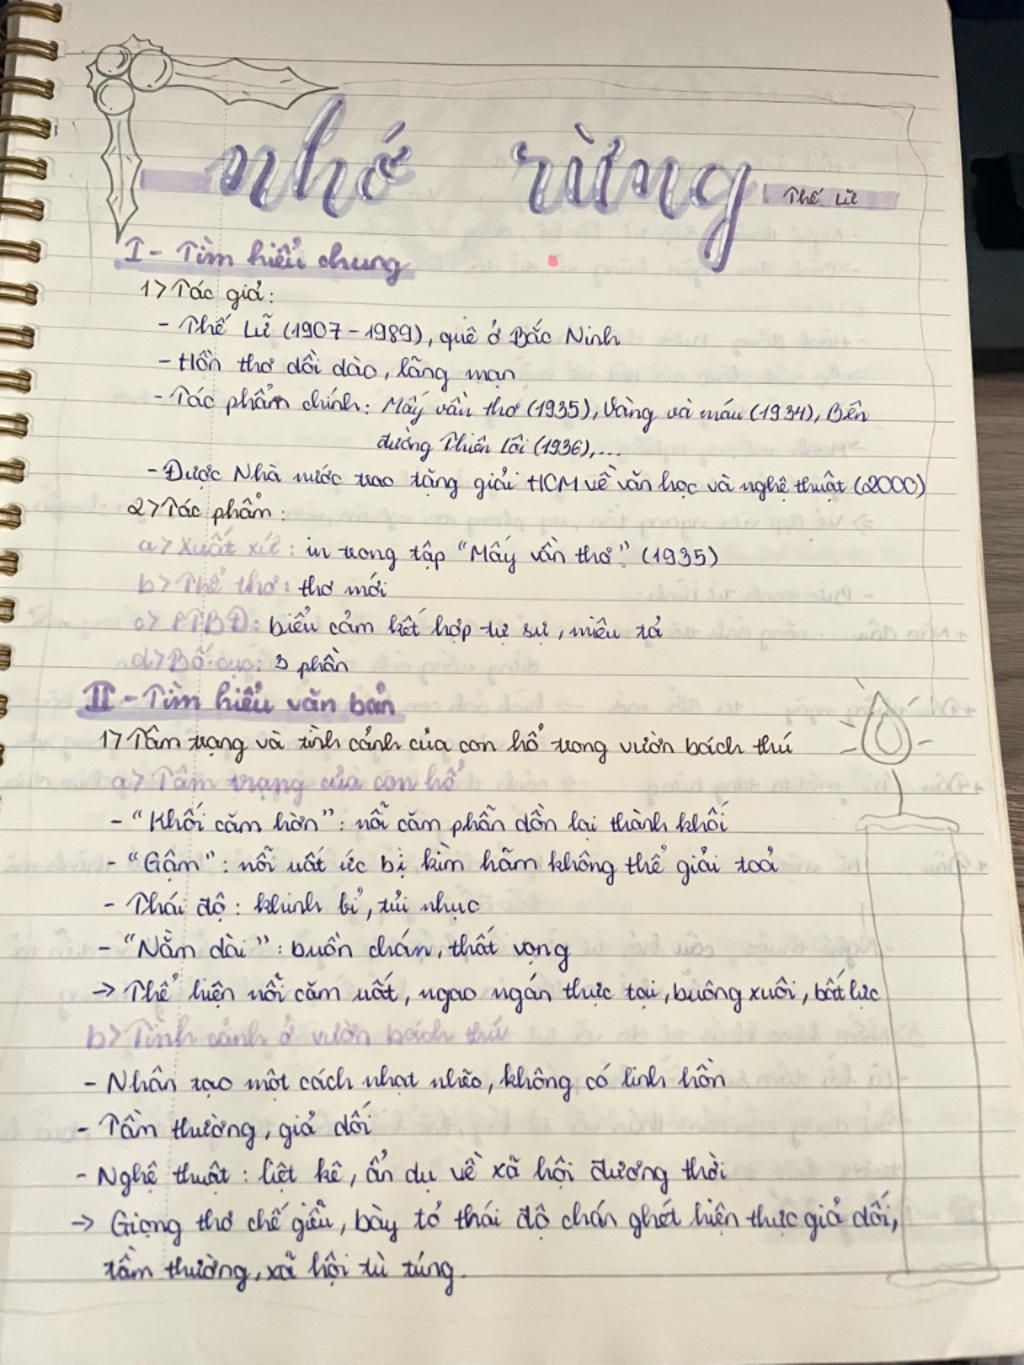 nhớ rừng
Thế Lữ
I - Tìm hiểu chung
1> Tác giả:
- Thế Lữ (1907 - 1989), quê ở Bắc Ninh
- Hồn thơ dồi dào, lãng mạn
- Tác phẩm chính: Mấy vần thơ (1935), Vàng và máu (1934), Bên
đường Thiên Lôi (1936),...
- Được Nhà nước trao tặng giải HCM về văn học và nghệ thuật (2000)
2> Tác phẩm:
a> Xuất xứ: in trong tập "Mấy vần thơ" (1935)
b> Thể thơ: thơ mới
c> PTBĐ: biểu cảm kết hợp tự sự, miêu tả
d> Bố cục: 3 phần
II - Tìm hiểu văn bản
1> Tâm trạng và tình cảnh của con hổ trong vườn bách thú
a> Tâm trạng của con hổ
- "Khối căm hờn": nỗi căm phẫn dồn lại thành khối
- "Gậm": nỗi uất ức bị kìm hãm không thể giải toả
- Thái độ: khinh bỉ, tủi nhục
- "Nằm dài": buồn chán, thất vọng
→ Thể hiện nỗi căm uất, ngao ngán thực tại, buông xuôi, bất lực
b> Tình cảnh ở vườn bách thú
- Nhân tạo một cách nhạt nhẽo, không có linh hồn
- Tầm thường, giả dối
- Nghệ thuật: liệt kê, ẩn dụ về xã hội đương thời
→ Giọng thơ chế giễu, bày tỏ thái độ chán ghét hiện thực giả dối,
tầm thường, xã hội tù túng.